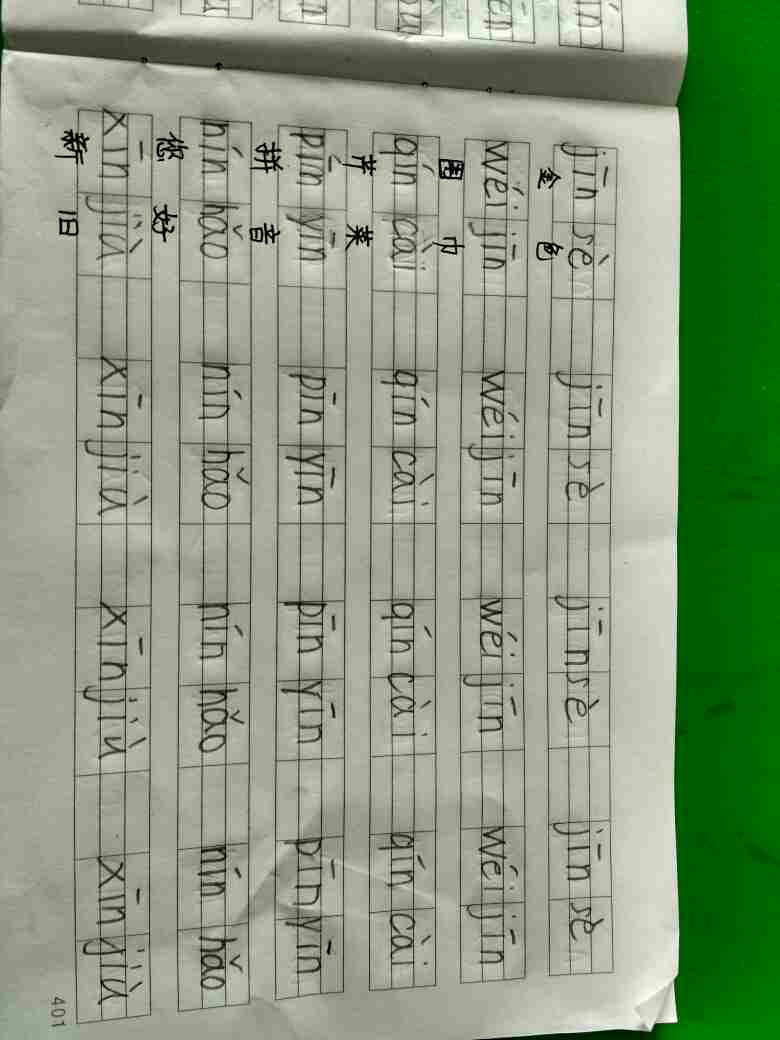 jīn sè jīn sè jīn sè jīn sè
金色
wéi jīn wéi jīn wéi jīn wéi jīn
围巾
qín cài qín cài qín cài qín cài
芹菜
pīn yīn pīn yīn pīn yīn pīn yīn
拼音
nín hǎo nín hǎo nín hǎo nín hǎo
您好
xīn jiù xīn jiù xīn jiù xīn jiù
新旧
401